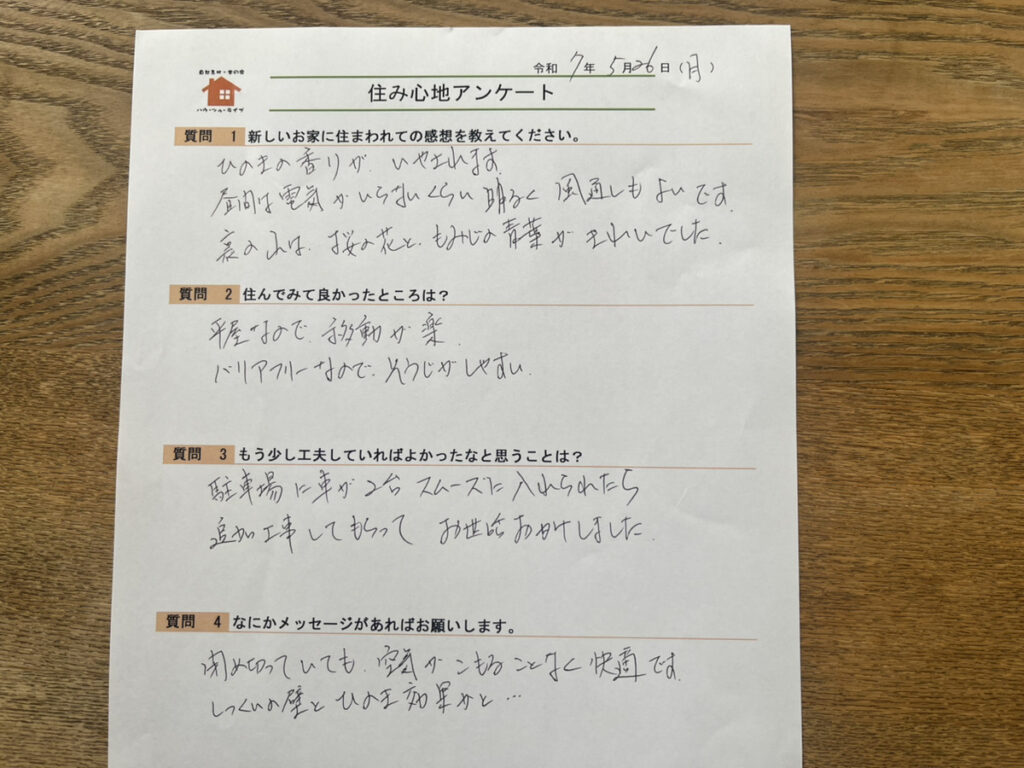 自然素材・木の家
ハウ・ツー・ライブ
令和 7年 5月26日(月)
住み心地アンケート
質問 1 新しいお家に住まわれての感想を教えてください。
ひのきの香りが、いやされます
昼間は電気がいらないくらい明るく 風通しもよいです。
裏の山は、桜の花と、もみじの青葉がきれいでした。
質問 2 住んでみて良かったところは?
平屋なので、移動が楽。
バリアフリーなので、そうじがしやすい。
質問 3 もう少し工夫していればよかったなと思うことは?
駐車場に車が2台 スムーズに入れられたら
追加工事してもらって お世話おかけしました。
質問 4 なにかメッセージがあればお願いします。
閉め切っていても、空気がこもることなく快適です。
しっくいの壁とひのき効果かと…